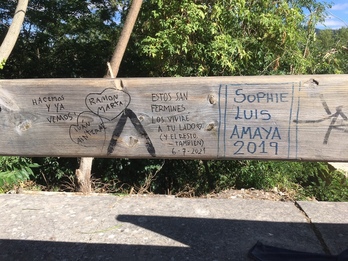 HACEMOS
Y YA
VEMOS
RAMON
MARTA
ESTOS SAN
FERMINES
LOS VIVIRE
A TU LADO
(Y EL RESTO
TAMBIEN)
6-7-2021
SOPHIE
LUIS
AMAYA
2019